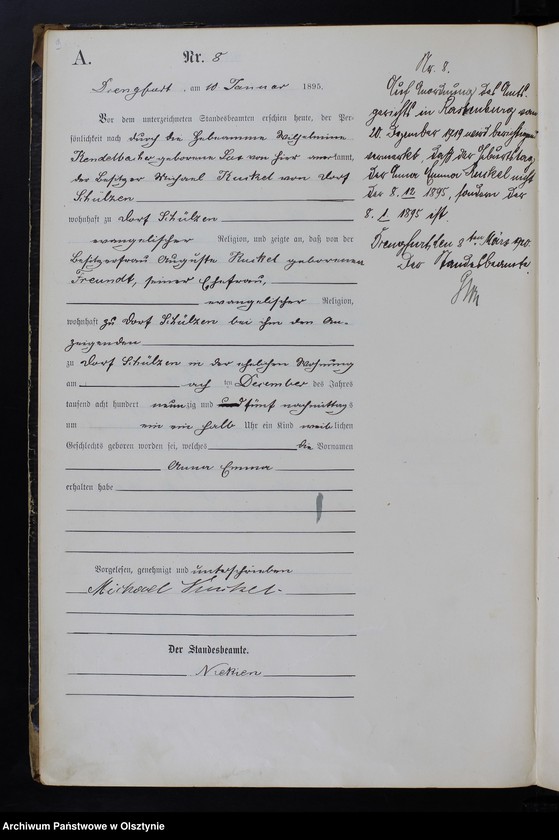 A.
Nr. 8
Drengfurt, am 10 Januar 1895.
Vor dem unterzeichneten Standesbeamten erschien heute, der Per-
sönlichkeit nach durch die Hebeamme Wilhelmine
geborene von hier anerkannt,
der Besitzer Michael Kunkel von Dorf
Schülzen
wohnhaft zu Dorf Schülzen
evangelischer Religion, und zeigte an, daß von der
Besitzerfrau Auguste Kunkel geborenen
Freundt, seiner Ehefrau,
evangelischer Religion,
wohnhaft zu Dorf Schülzen bei ihm dem An-
zeigenden
zu Dorf Schülzen in der ehelichen Wohnung
am acht ten Dezember des Jahres
tausend acht hundert neunzig und fünf nachmittags
um ein ein halb Uhr ein Kind weiblichen
Geschlechts geboren worden sei, welches die Vornamen
Anna Emma
erhalten habe
Vorgelesen, genehmigt und unterschrieben
Michael Kunkel.
Der Standesbeamte.
Nr. 8.
Auf Anordnung des Amts-
gerichts in Rastenburg vom
20. Dezember 1919 wird berichtigend
vermerkt, daß der Geburtstag
der Anna Emma Kunkel nicht
der 8. 12 1895, sondern der
8. 1 1895 ist.
Drengfurt, den 8ten März 1920.
Der Standesbeamte.
Archiwum Państwowe w Olsztynie